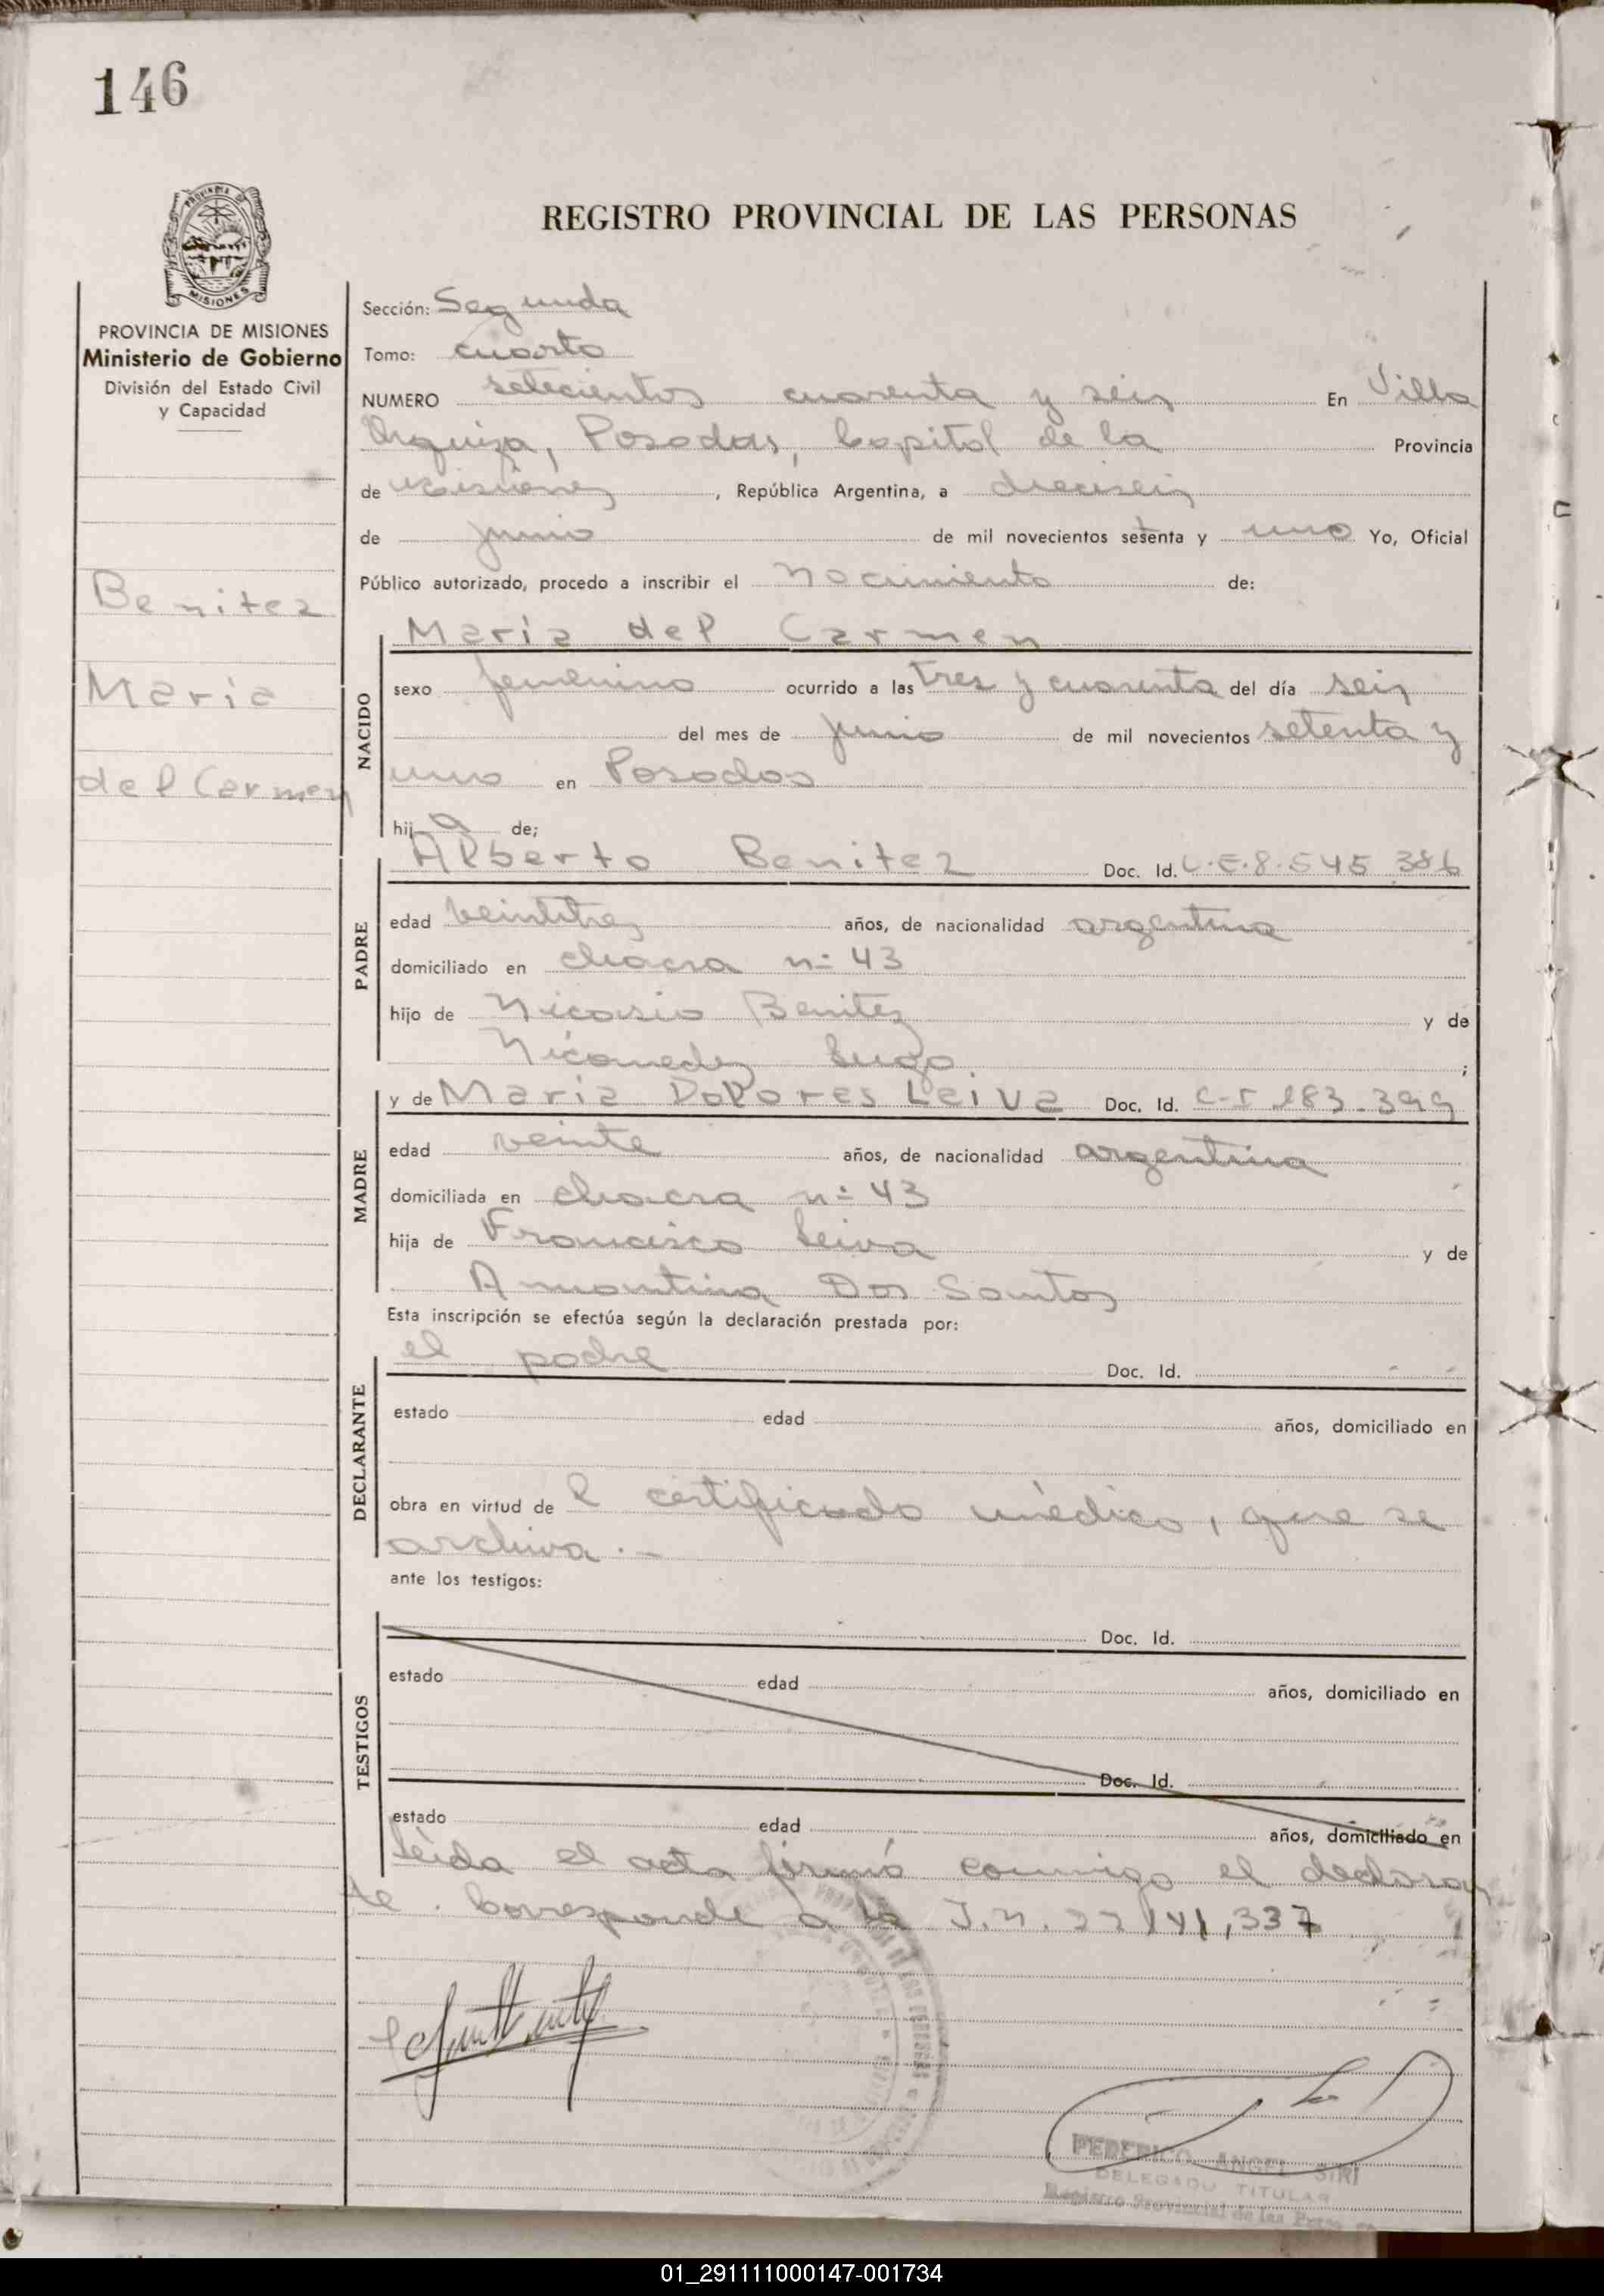 146
REGISTRO PROVINCIAL DE LAS PERSONAS
PROVINCIA DE MISIONES
Ministerio de Gobierno
División del Estado Civil
y Capacidad
Benitez
Maria
del Carmen
Sección: Segunda
Tomo: cuarto
NUMERO setecientos cuarenta y seis En Villa
Urquiza, Posadas, Capital de la Provincia
de Misiones, República Argentina, a dieciseis
de junio de mil novecientos setenta y uno Yo, Oficial
Público autorizado, procedo a inscribir el nacimiento de:
NACIDO
Maria del Carmen
sexo femenino ocurrido a las tres y cuarenta del día seis
del mes de junio de mil novecientos setenta y
uno en Posadas
hija de;
PADRE
Alberto Benitez Doc. Id. L.E.8.545.386
edad veintitres años, de nacionalidad argentina
domiciliado en chacra nº 43
hijo de Nicasio Benitez y de
Nicomedes Lugo ;
MADRE
y de Maria Dolores Leiva Doc. Id. C.I 183.399
edad veinte años, de nacionalidad argentina
domiciliada en chacra nº 43
hija de Francisco Leiva y de
Amantina Dos Santos
Esta inscripción se efectúa según la declaración prestada por:
DECLARANTE
el padre Doc. Id.
estado edad años, domiciliado en
obra en virtud de l certificado médico, que se
archiva.-
ante los testigos:
TESTIGOS
Doc. Id.
estado edad años, domiciliado en
Doc. Id.
estado edad años, domiciliado en
Leida el acta firmó conmigo el declaran
te. Corresponde a la I.N. 22141,337
FEDERICO ANGEL SIRI
DELEGADO TITULAR
Registro Provincial de las Pers
01_291111000147-001734